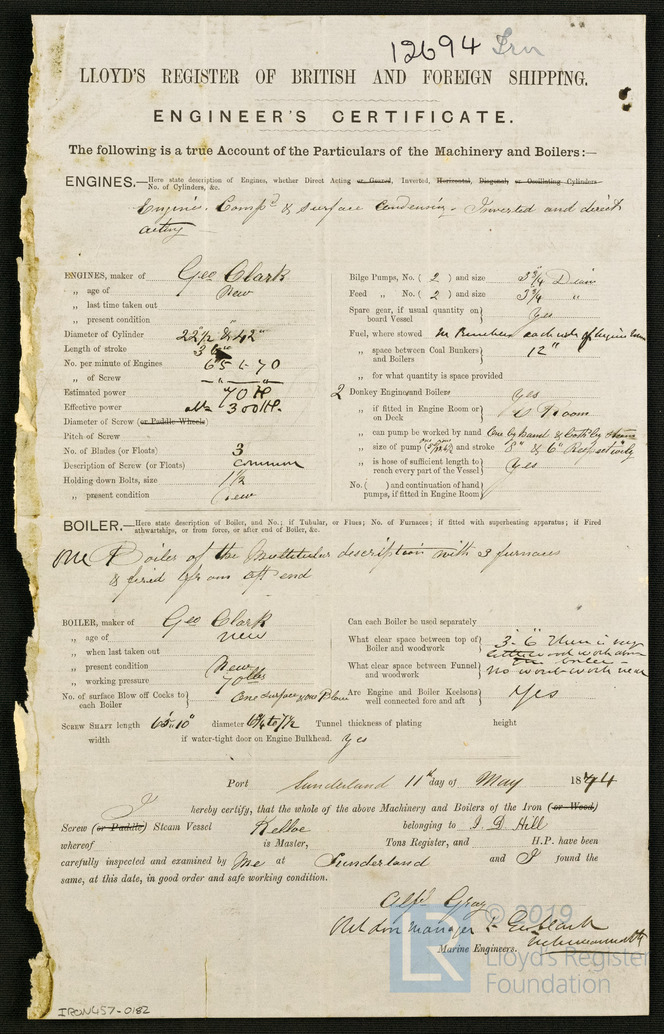 12694 Iron
LLOYD'S REGISTER OF BRITISH AND FOREIGN SHIPPING.
ENGINEER'S CERTIFICATE.
The following is a true Account of the Particulars of the Machinery and Boilers:—
ENGINES.—Here state description of Engines, whether Direct Acting or Geared, Inverted, Horizontal, Diagonal, or Oscillating Cylinders
No. of Cylinders, &c.
Engines. Compd & Surface Condensing. Inverted and direct
acting
ENGINES, maker of Geo Clark
„ age of New
„ last time taken out
„ present condition
Diameter of Cylinder 22½ & 42"
Length of stroke 3 6"
No. per minute of Engines 65 to 70
„ of Screw „ „
Estimated power 70 H
Effective power 300 H.
Diameter of Screw (or Paddle Wheels)
Pitch of Screw
No. of Blades (or Floats) 3
Description of Screw (or Floats) common
Holding down Bolts, size 1½
„ present condition New
Bilge Pumps, No. ( 2 ) and size 3¾ Diam
Feed „ No. ( 2 ) and size 3¾ „
Spare gear, if usual quantity on board Vessel Yes
Fuel, where stowed In Bunkers each side of Engine Room
„ space between Coal Bunkers and Boilers 12"
„ for what quantity is space provided
2 Donkey Engine and Boiler Yes
„ if fitted in Engine Room or on Deck E Room
„ can pump be worked by hand One by hand & both by steam
„ size of pump and stroke 8" & 6" Respectively
„ is hose of sufficient length to reach every part of the Vessel Yes
No. ( ) and continuation of hand pumps, if fitted in Engine Room
BOILER.—Here state description of Boiler, and No.; if Tubular, or Flues; No. of Furnaces; if fitted with superheating apparatus; if Fired
athwartships, or from force, or after end of Boiler, &c.
One Boiler of the Multitubular description with 3 furnaces
& fired from aft end
BOILER, maker of Geo Clark
„ age of new
„ when last taken out
„ present condition New
„ working pressure 70 lbs
No. of surface Blow off Cocks to each Boiler One surface
Can each Boiler be used separately
What clear space between top of Boiler and woodwork 3-6" There is very
little wood work above
the boiler
What clear space between Funnel and woodwork no wood work near
Are Engine and Boiler Keelsons well connected fore and aft Yes
SCREW SHAFT length 65" 10" diameter 6¾ to 7½ Tunnel thickness of plating height
width if water-tight door on Engine Bulkhead. Yes
Port Sunderland 11th day of May 1874
I hereby certify, that the whole of the above Machinery and Boilers of the Iron (or Wood)
Screw (or Paddle) Steam Vessel Kelloe belonging to J. D. Hill
whereof is Master, Tons Register, and H.P. have been
carefully inspected and examined by Me at Sunderland and I found the
same, at this date, in good order and safe working condition.
Alfd Gray
manager to G Clark
Marine Engineers.
© 2019
LR
Lloyd's Register
Foundation
IRON457-0182